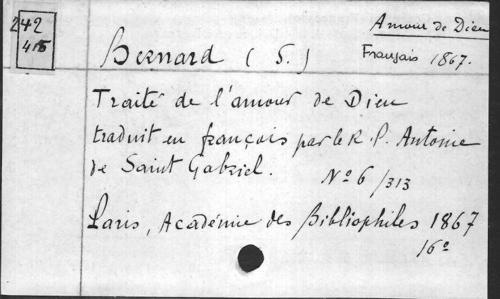 242
415
Amour de Dieu
Bernard (S.)
Français 1867.
Traité de l'amour de Dieu
traduit en françois par le R. P. Antoine
de Saint Gabriel.
Nº 6/313
Paris, Académie des Bibliophiles 1867
16º